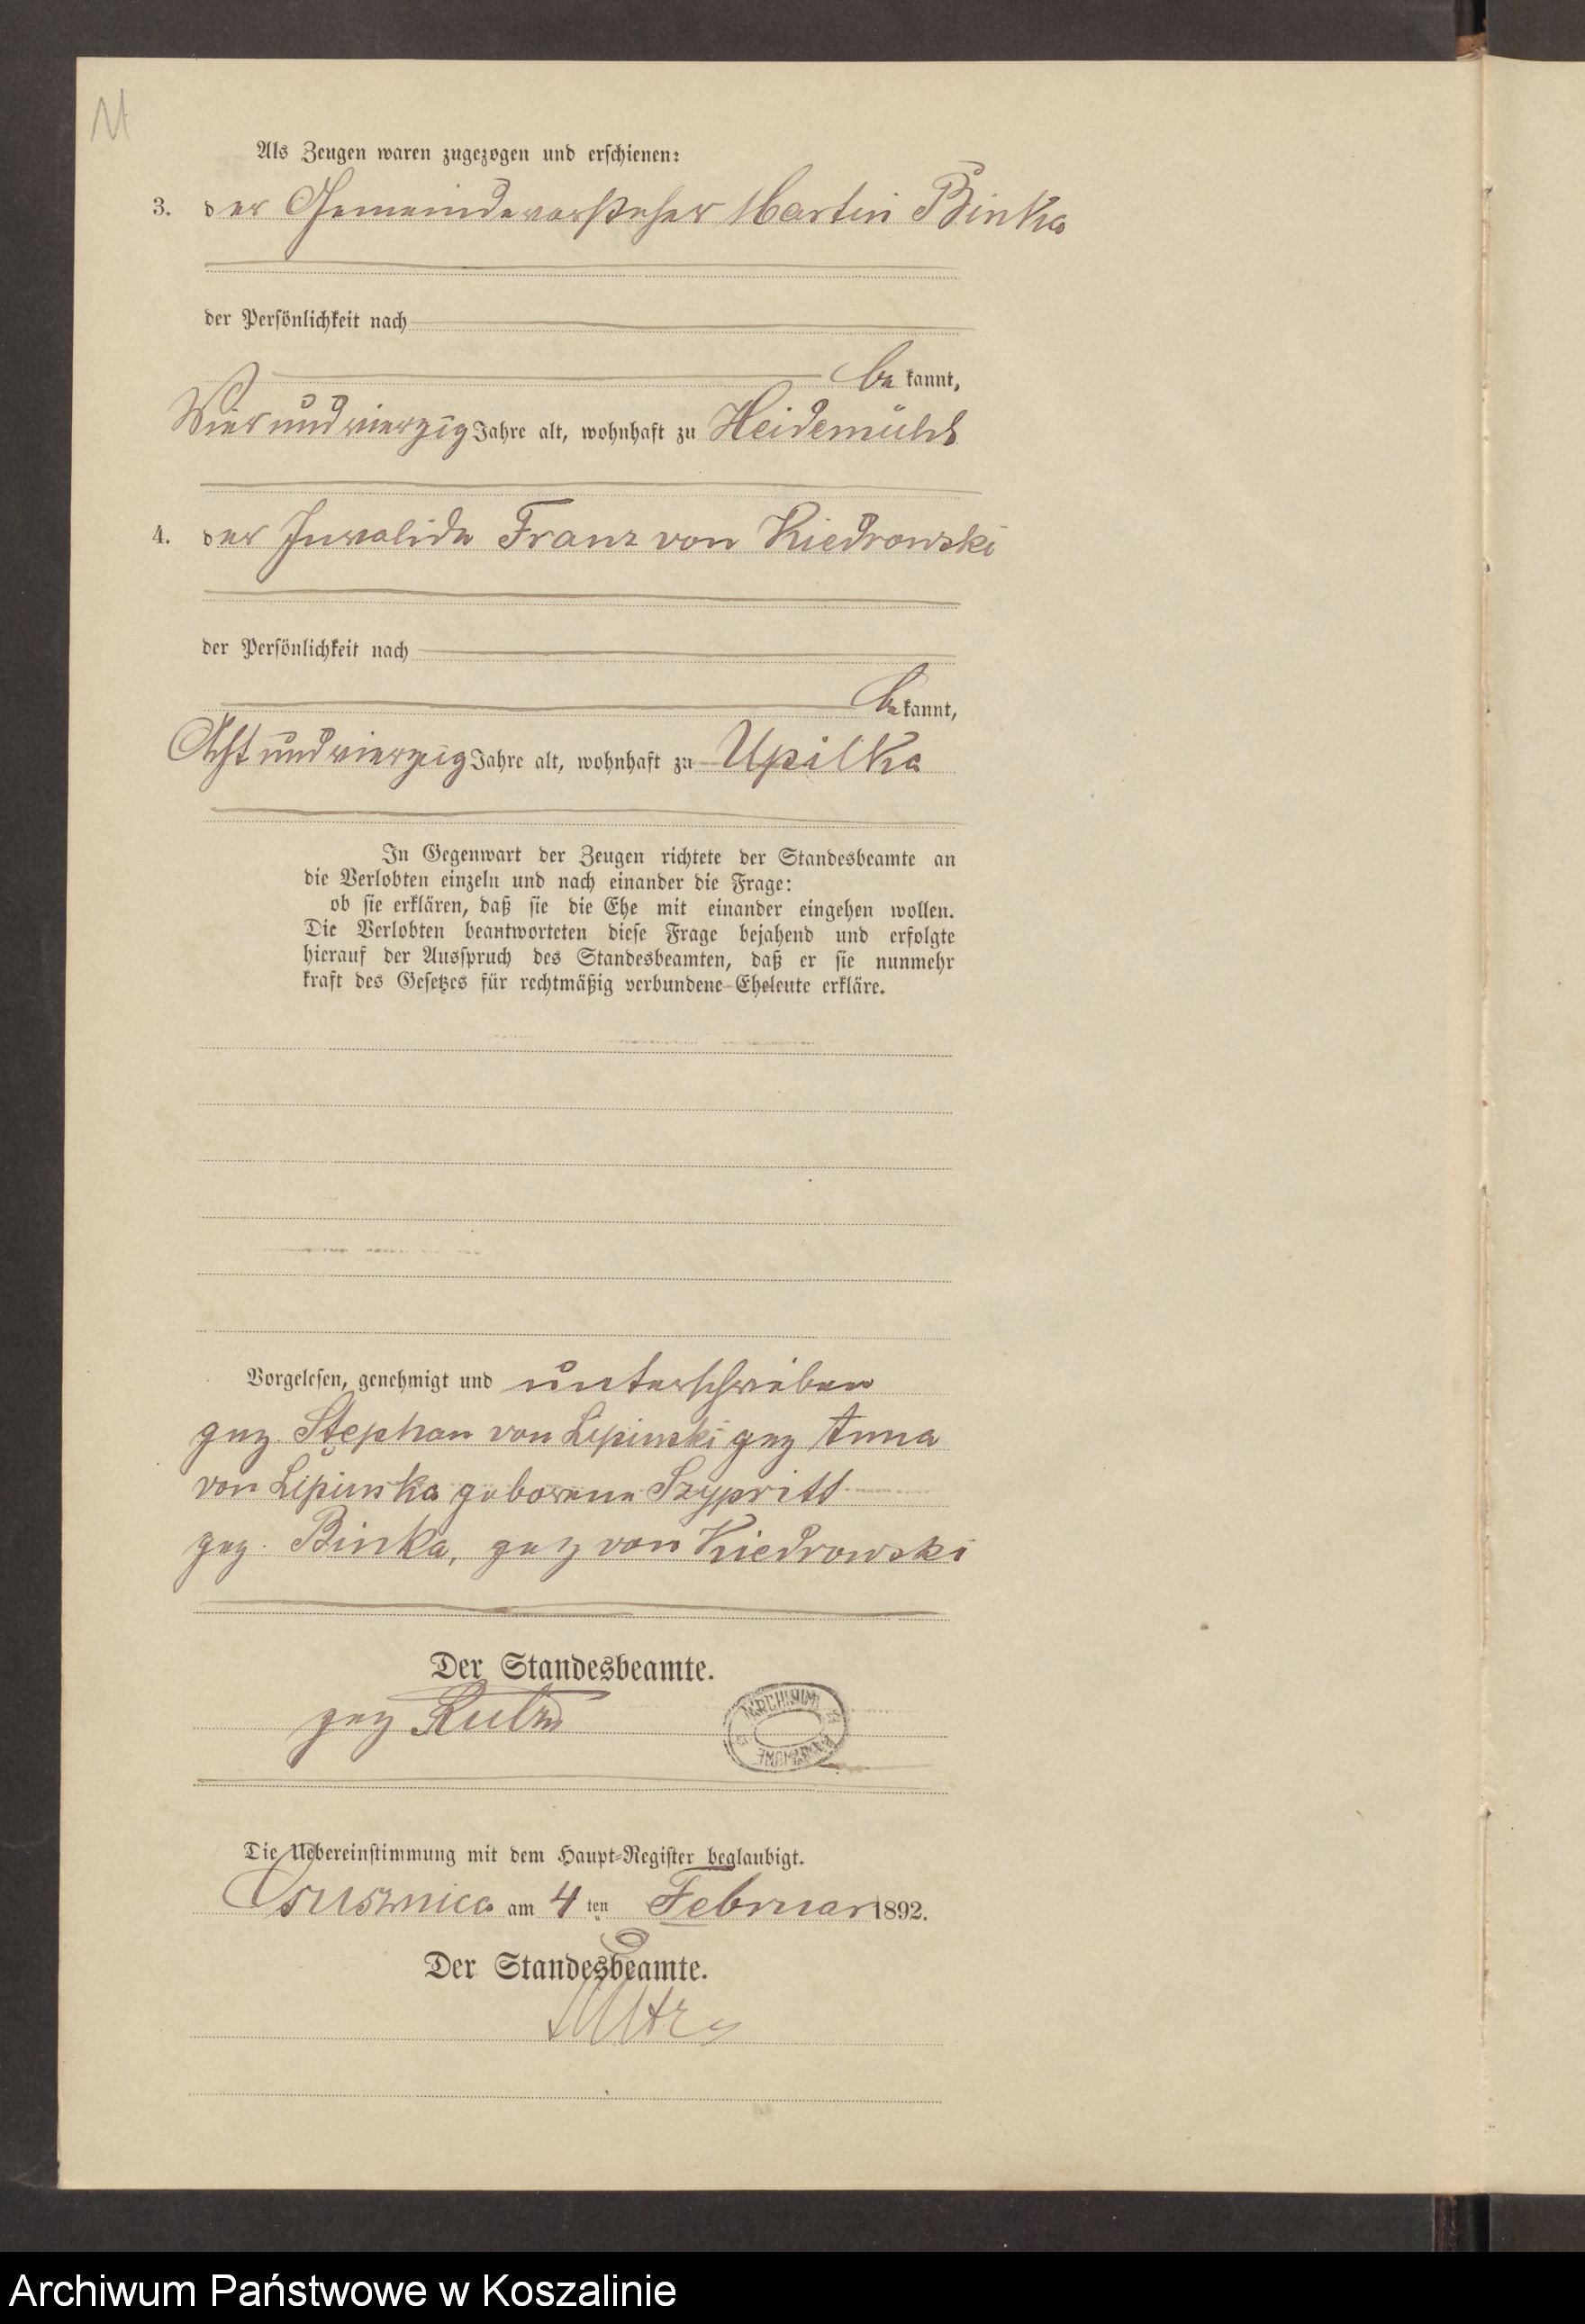 Als Zeugen waren zugezogen und erschienen:
3. der Gemeindevorsteher Martin Binka
der Persönlichkeit nach
bekannt,
Vier und vierzig Jahre alt, wohnhaft zu Heidemühl
4. der Invalide Franz von Kiedrowski
der Persönlichkeit nach
bekannt,
Acht und vierzig Jahre alt, wohnhaft zu Upilka
In Gegenwart der Zeugen richtete der Standesbeamte an
die Verlobten einzeln und nach einander die Frage:
ob sie erklären, daß sie die Ehe mit einander eingehen wollen.
Die Verlobten beantworteten diese Frage bejahend und erfolgte
hierauf der Ausspruch des Standesbeamten, daß er sie nunmehr
kraft des Gesetzes für rechtmäßig verbundene Eheleute erkläre.
Vorgelesen, genehmigt und unterschrieben
gez. Stephan von Lipinski gez Anna
von Lipinska geborene Szypritt
gez. Binka, gez von Kiedrowski
Der Standesbeamte.
gez
ARCHIWUM
Die Uebereinstimmung mit dem Haupt-Register beglaubigt.
am 4 ten Februar 1892.
Der Standesbeamte.
Archiwum Państwowe w Koszalinie